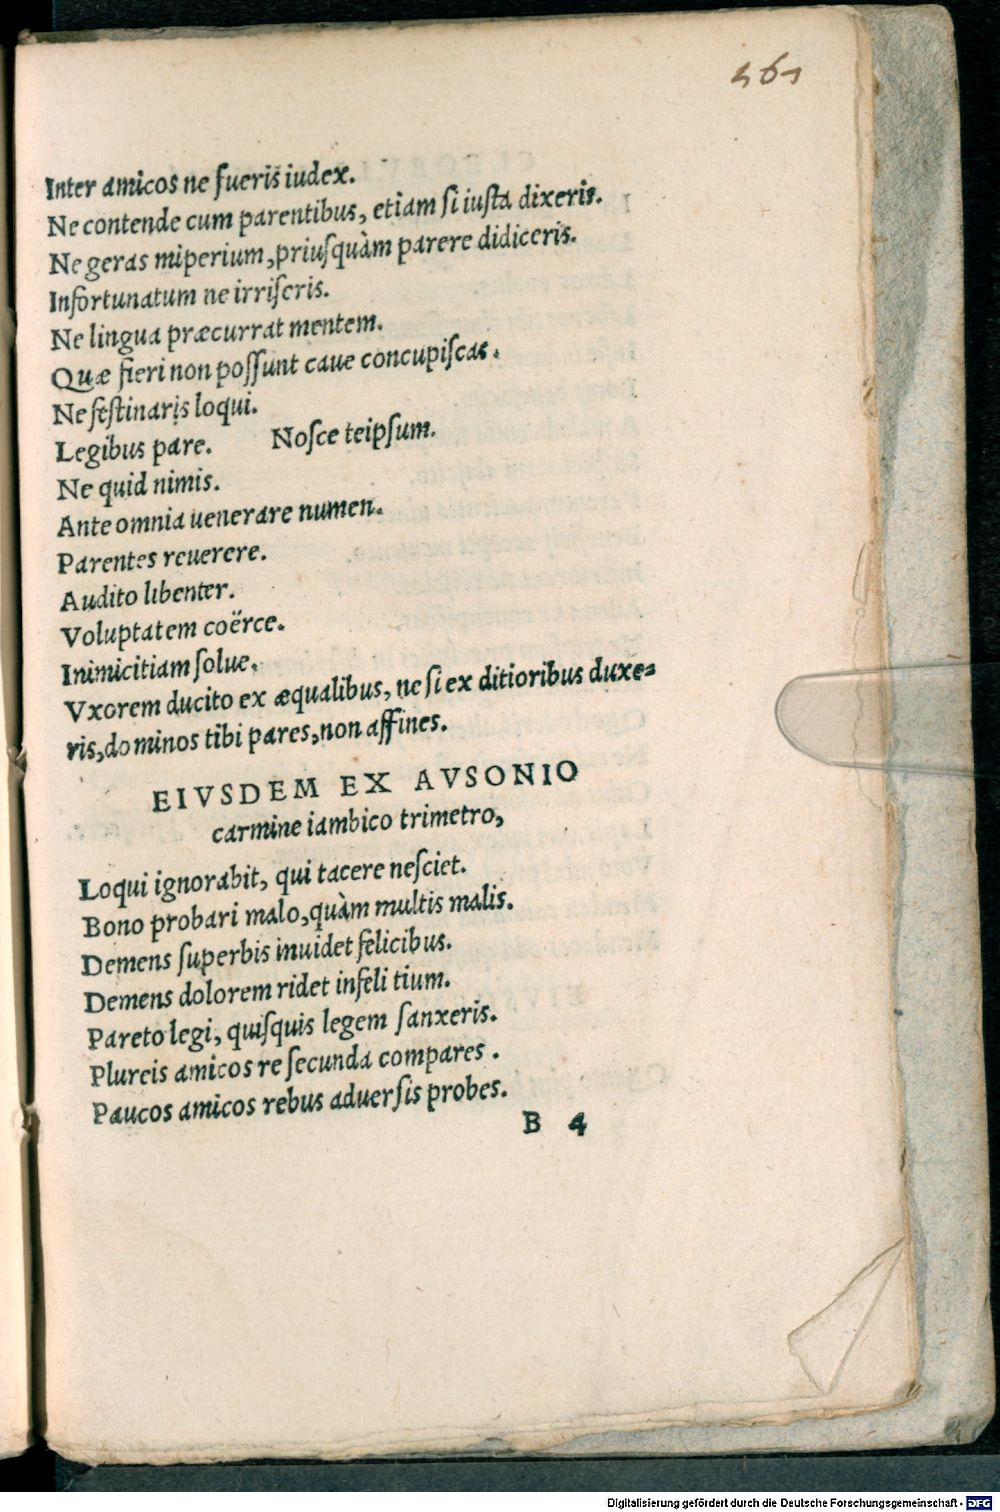 561
Inter amicos ne fueris iudex.
Ne contende cum parentibus, etiam si iusta dixeris.
Ne geras miperium, priusquàm parere didiceris.
Infortunatum ne irriseris.
Ne lingua præcurrat mentem.
Quæ fieri non possunt caue concupiscas.
Ne festinaris loqui.
Legibus pare. Nosce teipsum.
Ne quid nimis.
Ante omnia uenerare numen.
Parentes reuerere.
Audito libenter.
Voluptatem coërce.
Inimicitiam solue.
Vxorem ducito ex æqualibus, ne si ex ditioribus duxe=
ris, dominos tibi pares, non affines.
EIVSDEM EX AVSONIO
carmine iambico trimetro,
Loqui ignorabit, qui tacere nesciet.
Bono probari malo, quàm multis malis.
Demens superbis inuidet felicibus.
Demens dolorem ridet infeli tium.
Pareto legi, quisquis legem sanxeris.
Plureis amicos re secunda compares.
Paucos amicos rebus aduersis probes.
B 4
Digitalisierung gefördert durch die Deutsche Forschungsgemeinschaft - DFG